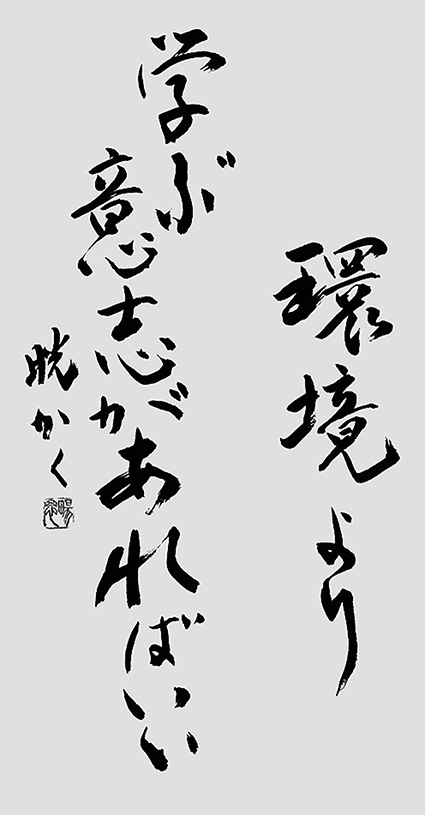 環境より
学ぶ意志があればいい
暁かく